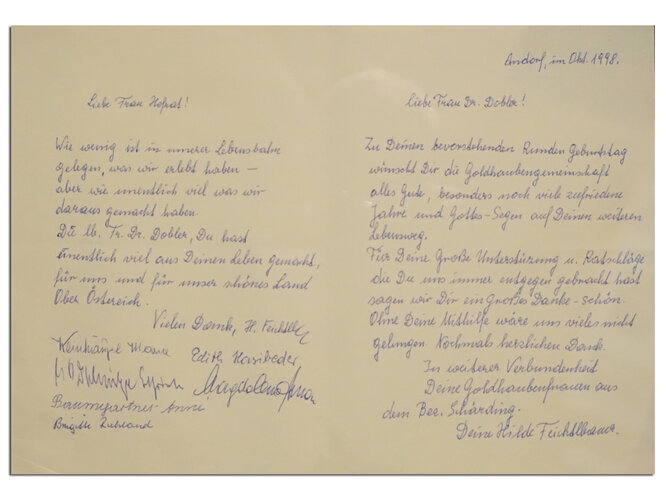 Liebe Frau Hofrat!
Wie wenig ist in unserer Lebensbahn
gelegen, was wir erlebt haben –
aber wie unentlich viel was wir
daraus gemacht haben.
Du lb. Fr. Dr. Dobler, Du hast
unentlich viel aus Deinen Leben gemacht,
für uns und für unser schönes Land
Ober Östereich.
Vielen Dank, H. Feichtlb
Edith
Magdalena
Baumgartner Anni
Brigitte
Andorf, im Okt. 1998.
Liebe Frau Dr. Dobler!
Zu Deinen bevorstehenden Runden Geburtstag
wünscht Dir die Goldhaubengemeinschaft
alles Gute, besonders noch viele zufriedene
Jahre und Gottes-Segen auf Deinen weiteren
Lebensweg.
Für Deine Große Unterstürzung u. Ratschläge
die Du uns immer entgegen gebracht hast
sagen wir Dir ein Großes Danke-schön.
Ohne Deine Mithilfe wäre uns vieles nicht
gelungen Nochmals herzlichen Dank.
In weiterer Verbundenheit
Deine Goldhaubenfrauen aus
dem Bez. Schärding.
Deine Hilde Feichtlbauer.